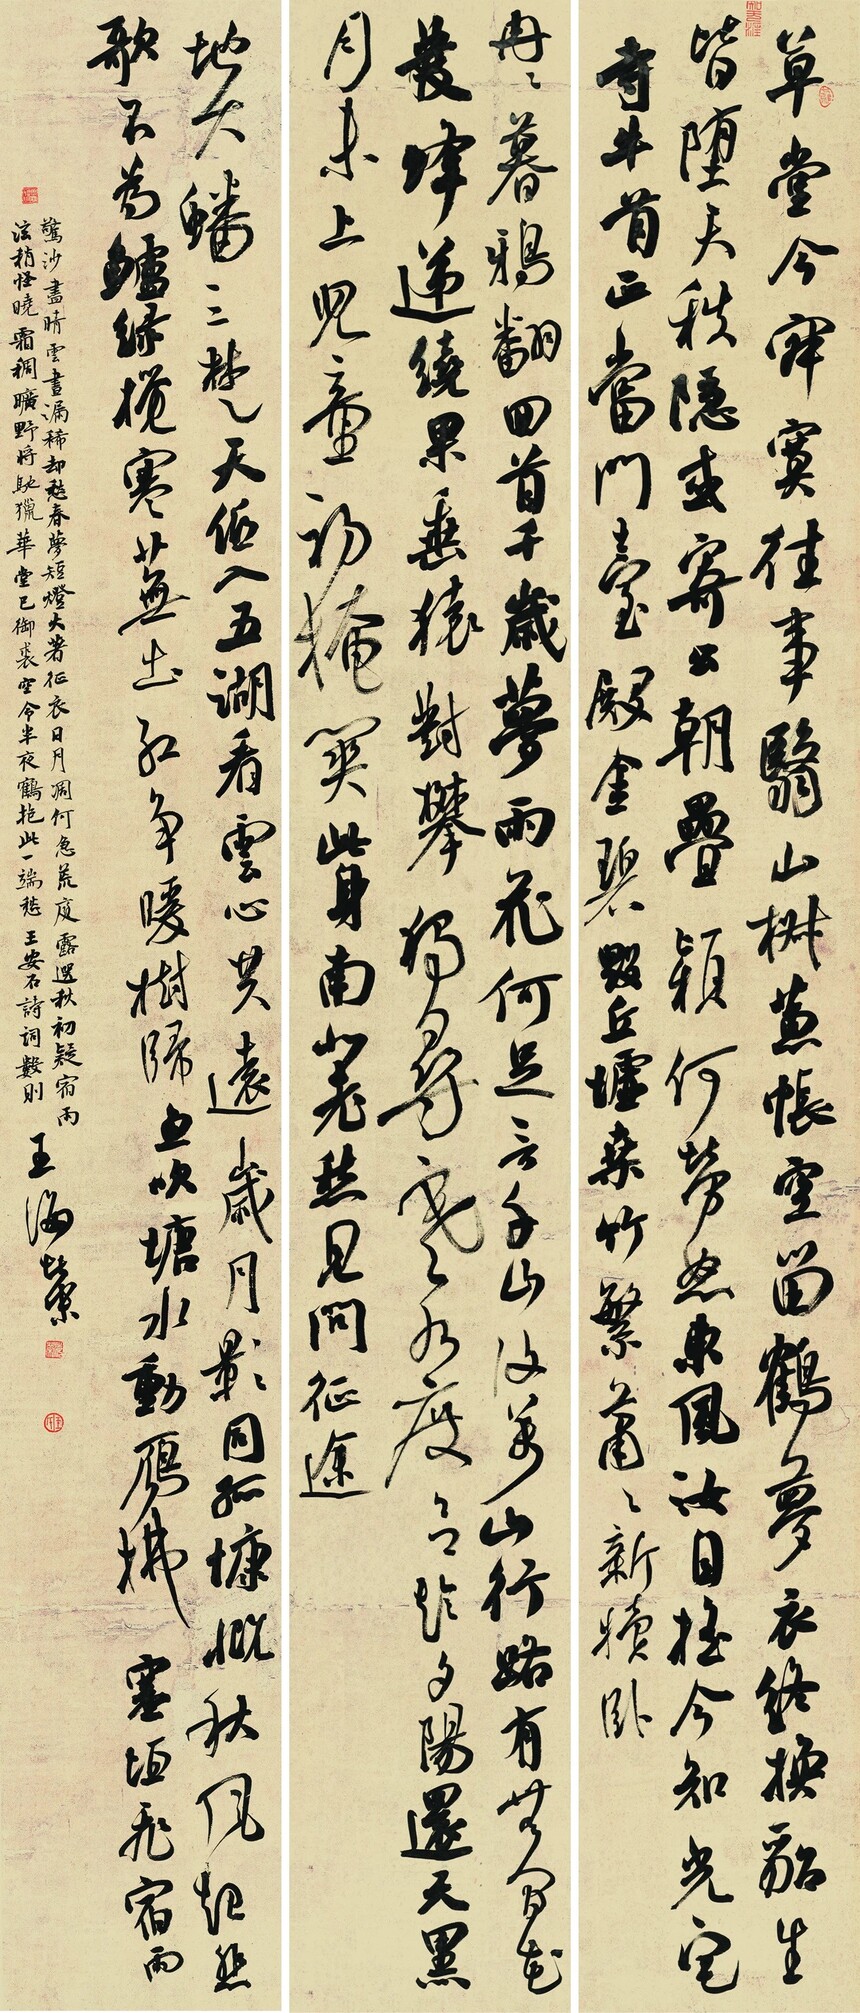 草堂今寂寞往事翳山椒蕙帳空留鶴夢衣終換貂生
皆墮天秩隱或寄公朝疊潁何勞怒東風汝自搖今知光宅
寺牛首正當門臺殿金碧毀丘墟桑竹繁蕭蕭新犢臥
冉冉暮鴉翻回首千歲夢雨花何足言千山復萬山行路有無間花
發蜂遞繞果垂猿對攀獨尋寒水度欲趁夕陽還天黑
月未上兒童初掩關此身南北老愁見問征途
地大蟠三楚天低入五湖看雲心共遠歲月影同孤慷慨秋風起悲
歌不為鱸綠攪寒蕪出紅爭暖樹歸魚吹塘水動雁拂塞垣飛宿雨
驚沙盡晴雲晝漏稀却愁春夢短燈火著征衣日月凋何急荒庭露遝秋初疑宿雨
泫稍怪曉霜稠曠野將馳獵華堂已御裘空令半夜鶴抱此一端愁 王安石詩詞數則
王海